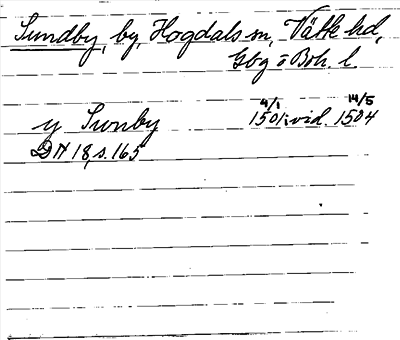 Sundby, by, Hogdals sn, Vätte hd,
Gbg o Boh. l.
y Sunby 4/1 1501 i vid. 14/5 1504
DN 18, s. 165